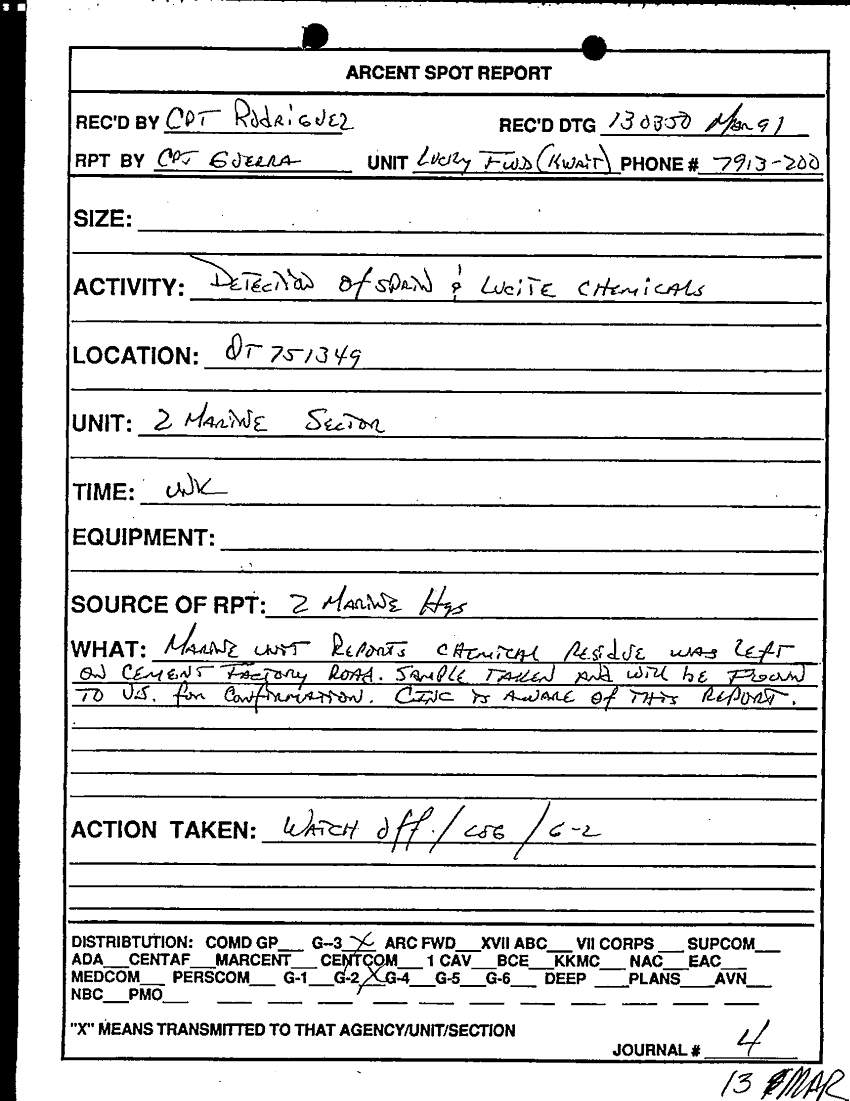 ARCENT SPOT REPORT
REC'D BY CPT Rodriguez REC'D DTG 130350 Mar 91
RPT BY CPT GUERRA UNIT Lucky FWD (KWAIT) PHONE # 7913-200
SIZE:
ACTIVITY: Detection of SARIN & LUCITE CHEMICALS
LOCATION: QT 751349
UNIT: 2 MARINE SECTOR
TIME: UNK
EQUIPMENT:
SOURCE OF RPT: 2 MARINE Hqs
WHAT: MARINE UNIT REPORTS CHEMICAL RESIDUE WAS LEFT
ON CEMENT FACTORY ROAD. SAMPLE TAKEN AND WILL BE FLOWN
TO U.S. for CONFIRMATION. CINC IS AWARE OF THIS REPORT.
ACTION TAKEN: WATCH Off. / / G-2
DISTRIBTUTION: COMD GP___ G–3 X ARC FWD___XVII ABC___VII CORPS___SUPCOM___
ADA___CENTAF___MARCENT___CENTCOM___1 CAV___BCE___KKMC___NAC___EAC___
MEDCOM___PERSCOM___G-1___G-2 X G-4___G-5___G-6___DEEP___PLANS___AVN___
NBC___PMO___
"X" MEANS TRANSMITTED TO THAT AGENCY/UNIT/SECTION
JOURNAL # 4
13 MAR